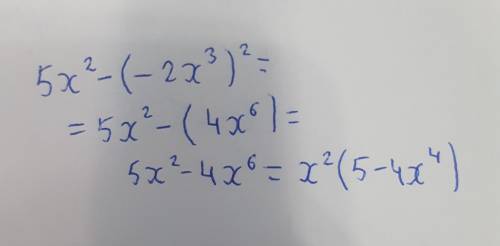 5x²-(-2x³)²=
=5x²-(4x⁶)=
5x²-4x⁶=x²(5-4x⁴)